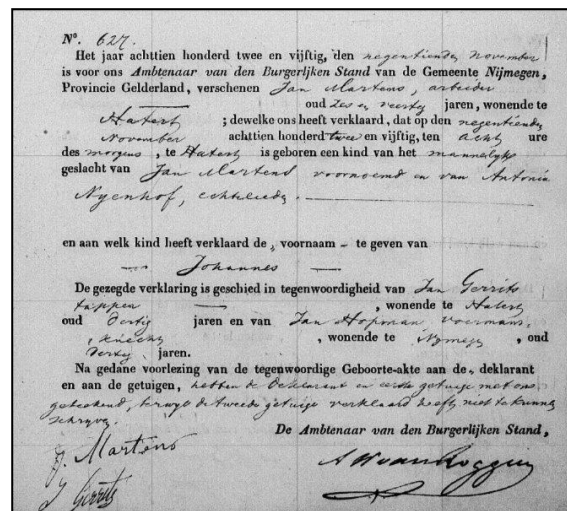 N°. 627.
Het jaar achttien honderd twee en vijftig, den negentienden november
is voor ons Ambtenaar van den Burgerlijken Stand van de Gemeente Nijmegen,
Provincie Gelderland, verschenen Jan Martens, arbeider
oud zes en veertig jaren, wonende te
Hatert ; dewelke ons heeft verklaard, dat op den negentienden
November achttien honderd twee en vijftig, ten acht ure
des morgens, te Hatert is geboren een kind van het mannelijk
geslacht van Jan Martens voornoemd en van Antonia
Nyenhof, echtelieden.
en aan welk kind heeft verklaard de voornaam te geven van
Johannes
De gezegde verklaring is geschied in tegenwoordigheid van Jan Gerrits
tapper, wonende te Hatert
oud dertig jaren en van Jan Hopman, voermans
knecht, wonende te Nymegen, oud
dertig jaren.
Na gedane voorlezing van de tegenwoordige Geboorte-akte aan de deklarant
en aan de getuigen, hebben de deklarant en eerste getuige met ons
geteekend, terwyl de tweede getuige verklaard heeft niet te kunnen
schryven.
De Ambtenaar van den Burgerlijken Stand,
J. Martens
J Gerrits